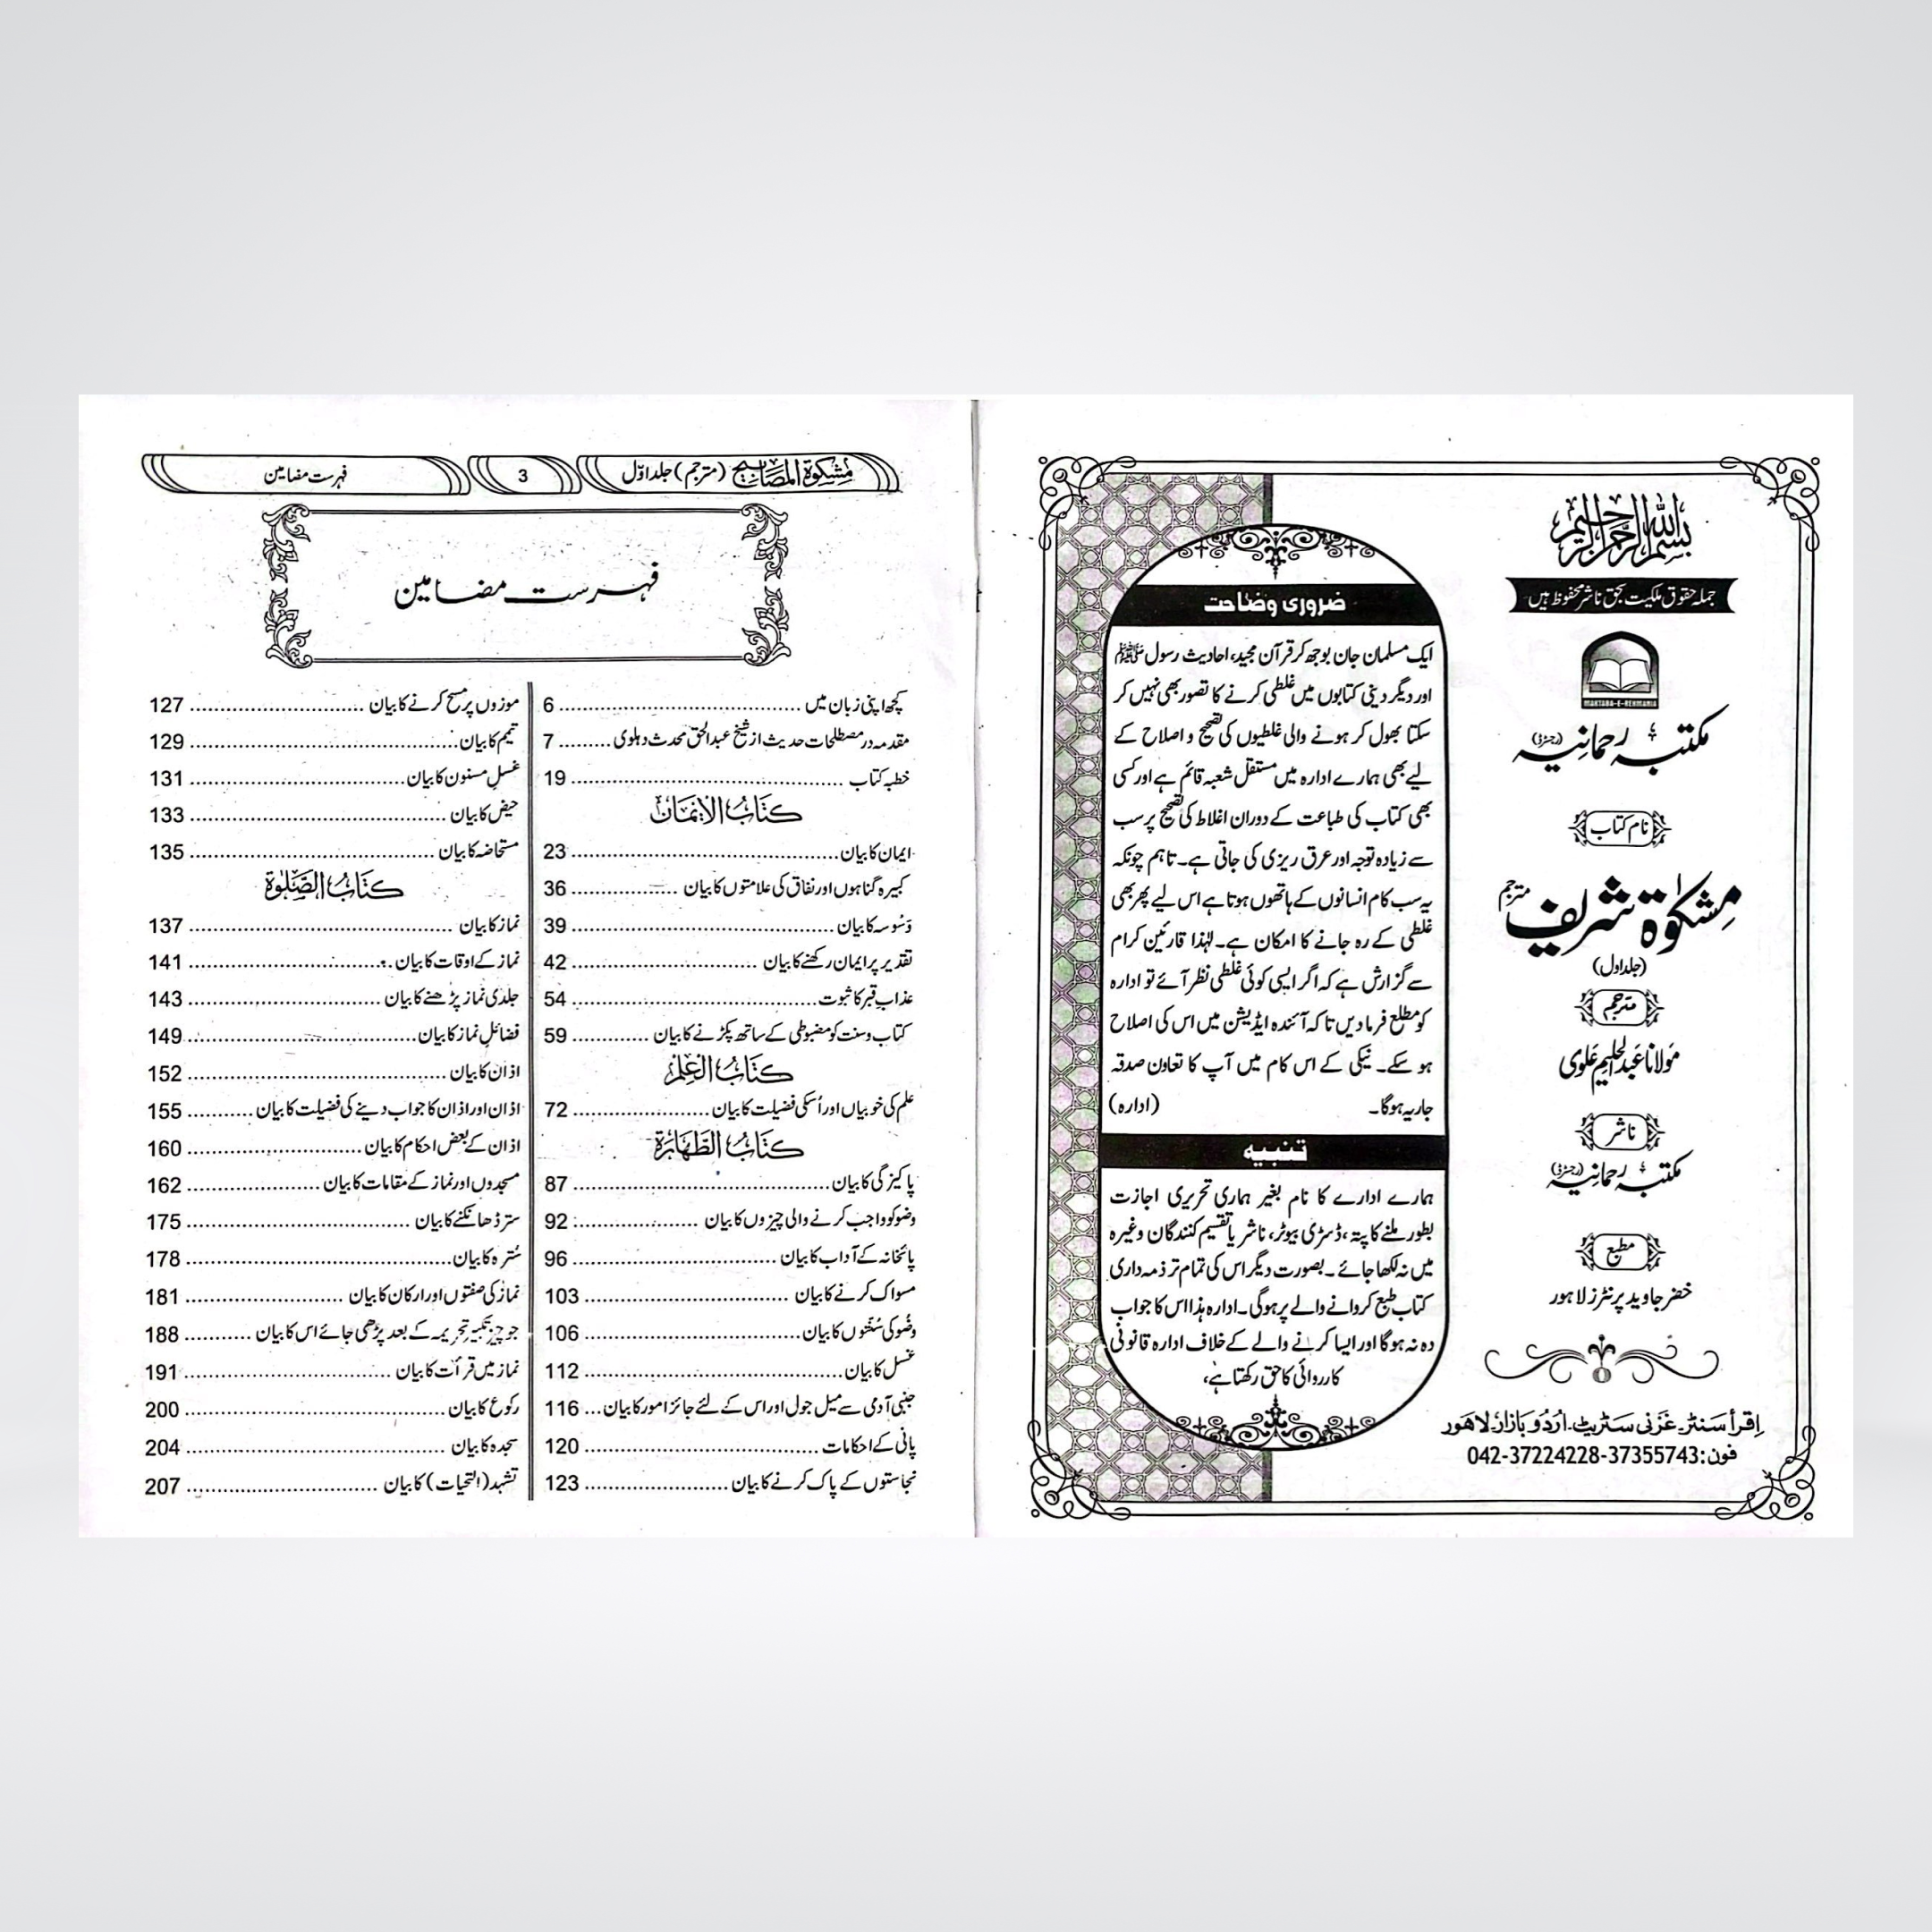 بسم الله الرحمن الرحيم
جملہ حقوق ملکیت بحق ناشر محفوظ ہیں
MAKTABA-E-REHMANIA
مکتبہ رحمانیہ (رجسٹرڈ)
نام کتاب
مشکوٰۃ شریف مترجم
(جلد اول)
مترجم
مولانا عبدالحلیم علوی
ناشر
مکتبہ رحمانیہ (رجسٹرڈ)
مطبع
خضر جاوید پرنٹرز لاہور
اِقرأ سَنٹر۔ غَزنی سَٹریٹ۔ اُردُو بَازار۔ لاھور
فون:042-37224228-37355743
ضروری وضاحت
ایک مسلمان جان بوجھ کر قرآن مجید، احادیث رسول ﷺ
اور دیگر دینی کتابوں میں غلطی کرنے کا تصور بھی نہیں کر
سکتا بھول کر ہونے والی غلطیوں کی تصحیح و اصلاح کے
لیے بھی ہمارے ادارہ میں مستقل شعبہ قائم ہے اور کسی
بھی کتاب کی طباعت کے دوران اغلاط کی تصحیح پر سب
سے زیادہ توجہ اور عرق ریزی کی جاتی ہے۔ تاہم چونکہ
یہ سب کام انسانوں کے ہاتھوں ہوتا ہے اس لیے پھر بھی
غلطی کے رہ جانے کا امکان ہے۔ لہٰذا قارئین کرام
سے گزارش ہے کہ اگر ایسی کوئی غلطی نظر آئے تو ادارہ
کو مطلع فرما دیں تاکہ آئندہ ایڈیشن میں اس کی اصلاح
ہو سکے۔ نیکی کے اس کام میں آپ کا تعاون صدقہ
جاریہ ہوگا۔ (ادارہ)
تنبیہ
ہمارے ادارے کا نام بغیر ہماری تحریری اجازت
بطور ملنے کا پتہ، ڈسٹری بیوٹر، ناشر یا تقسیم کنندگان وغیرہ
میں نہ لکھا جائے۔ بصورت دیگر اس کی تمام تر ذمہ داری
کتاب طبع کروانے والے پر ہوگی۔ ادارہ ہذا اس کا جواب
دہ نہ ہوگا اور ایسا کرنے والے کے خلاف ادارہ قانونی
کارروائی کا حق رکھتا ہے،
مشکوۃ المصابیح (مترجم) جلد اوّل 3 فہرست مضامین
فہرست مضامین
کچھ اپنی زبان میں 6
مقدمہ در مصطلحات حدیث از شیخ عبدالحق محدث دہلوی 7
خطبہ کتاب 19
كتاب الايمان
ایمان کا بیان 23
کبیرہ گناہوں اور نفاق کی علامتوں کا بیان 36
وَسْوسہ کا بیان 39
تقدیر پر ایمان رکھنے کا بیان 42
عذاب قبر کا ثبوت 54
کتاب و سنت کو مضبوطی کے ساتھ پکڑنے کا بیان 59
كتاب العلم
علم کی خوبیاں اور اُسکی فضیلت کا بیان 72
كتاب الطهارة
پاکیزگی کا بیان 87
وضو کو واجب کرنے والی چیزوں کا بیان 92
پائخانہ کے آداب کا بیان 96
مسواک کرنے کا بیان 103
وضُو کی سُنتوں کا بیان 106
غسل کا بیان 112
جنبی آدمی سے میل جول اور اس کے لئے جائز امور کا بیان 116
پانی کے احکامات 120
نجاستوں کے پاک کرنے کا بیان 123
موزوں پر مسح کرنے کا بیان 127
تیمم کا بیان 129
غسلِ مسنون کا بیان 131
حیض کا بیان 133
مستحاضہ کا بیان 135
كتاب الصلوة
نماز کا بیان 137
نماز کے اوقات کا بیان 141
جلدی نماز پڑھنے کا بیان 143
فضائلِ نماز کا بیان 149
اذان کا بیان 152
اذان اور اذان کا جواب دینے کی فضیلت کا بیان 155
اذان کے بعض احکام کا بیان 160
مسجدوں اور نماز کے مقامات کا بیان 162
ستر ڈھانکنے کا بیان 175
سُترہ کا بیان 178
نماز کی صفتوں اور ارکان کا بیان 181
جو چیز تکبیرِ تحریمہ کے بعد پڑھی جائے اس کا بیان 188
نماز میں قرأت کا بیان 191
رکوع کا بیان 200
سجدہ کا بیان 204
تشہد (التحیات) کا بیان 207